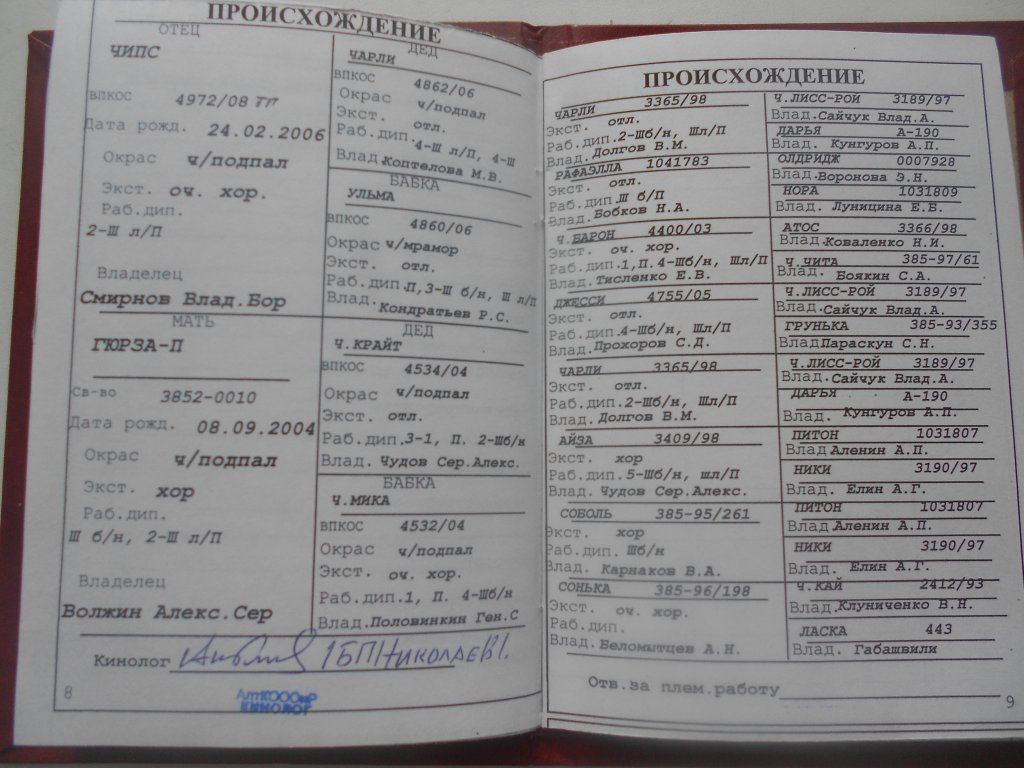 ПРОИСХОЖДЕНИЕ
ОТЕЦ
ЧИПС
ВПКОС 4972/08
Дата рожд. 24.02.2006
Окрас ч/подпал
Экст. оч. хор.
Раб.дип.
2-Ш л/П
Владелец
Смирнов Влад.Бор
МАТЬ
ГЮРЗА-П
Св-во 3852-0010
Дата рожд. 08.09.2004
Окрас ч/подпал
Экст. хор
Раб.дип.
Ш б/н, 2-Ш л/П
Владелец
Волжин Алекс.Сер
ДЕД
ЧАРЛИ
ВПКОС 4862/06
Окрас ч/подпал
Экст. отл.
Раб.дип. 4-Ш л/П, 4-Ш
Влад.Коптелова М.В.
БАБКА
УЛЬМА
ВПКОС 4860/06
Окрас ч/мрамор
Экст. отл.
Раб.дип.П,3-Ш б/н, Ш л/П
Влад. Кондратьев Р.С.
ДЕД
Ч.КРАЙТ
ВПКОС 4534/04
Окрас ч/подпал
Экст. отл.
Раб.дип.3-1, П. 2-Шб/н
Влад. Чудов Сер.Алекс.
БАБКА
Ч.МИКА
ВПКОС 4532/04
Окрас ч/подпал
Экст. оч. хор.
Раб.дип.1, П. 4-Шб/н
Влад.Половинкин Ген.С
Кинолог
КИНОЛОГ
8
ПРОИСХОЖДЕНИЕ
ЧАРЛИ 3365/98
Экст. отл.
Раб.дип.2-Шб/н, Шл/П
Влад.Долгов В.М.
РАФАЭЛЛА 1041783
Экст. отл.
Раб.дип.Ш б/П
Влад.Бобков Н.А.
Ч.БАРОН 4400/03
Экст. оч. хор.
Раб.дип.1,П.4-Шб/н, Шл/П
Влад.Тисленко Е.В.
ДЖЕССИ 4755/05
Экст. отл.
Раб.дип.4-Шб/н, Шл/П
Влад.Прохоров С.Д.
ЧАРЛИ 3365/98
Экст. отл.
Раб.дип.2-Шб/н, Шл/П
Влад. Долгов В.М.
АЙЗА 3409/98
Экст. хор
Раб.дип.5-Шб/н, шл/П
Влад. Чудов Сер.Алекс.
СОБОЛЬ 385-95/261
Экст. хор
Раб.дип. Шб/н
Влад. Карнаков В.А.
СОНЬКА 385-96/198
Экст. оч. хор.
Раб.дип.
Влад.Беломытцев А.Н.
Ч.ЛИСС-РОЙ 3189/97
Влад.Сайчук Влад.А.
ДАРЬЯ А-190
Влад. Кунгуров А.П.
ОЛДРИДЖ 0007928
Влад.Воронова Э.Н.
НОРА 1031809
Влад. Луницина Е.Б.
АТОС 3366/98
Влад.Коваленко Н.И.
Ч.ЧИТА 385-97/61
Влад. Боякин С.А.
Ч.ЛИСС-РОЙ 3189/97
Влад.Сайчук Влад.А.
ГРУНЬКА 385-93/355
ВладПараскун С.Н.
Ч.ЛИСС-РОЙ 3189/97
Влад.Сайчук Влад.А.
ДАРЬЯ А-190
Влад. Кунгуров А.П.
ПИТОН 1031807
Влад Аленин А.П.
НИКИ 3190/97
Влад. Елин А.Г.
ПИТОН 1031807
Влад Аленин А.П.
НИКИ 3190/97
Влад. Елин А.Г.
Ч.КАЙ 2412/93
Влад.Клуниченко В.Н.
ЛАСКА 443
Влад. Габашвили
Отв.за плем.работу
9